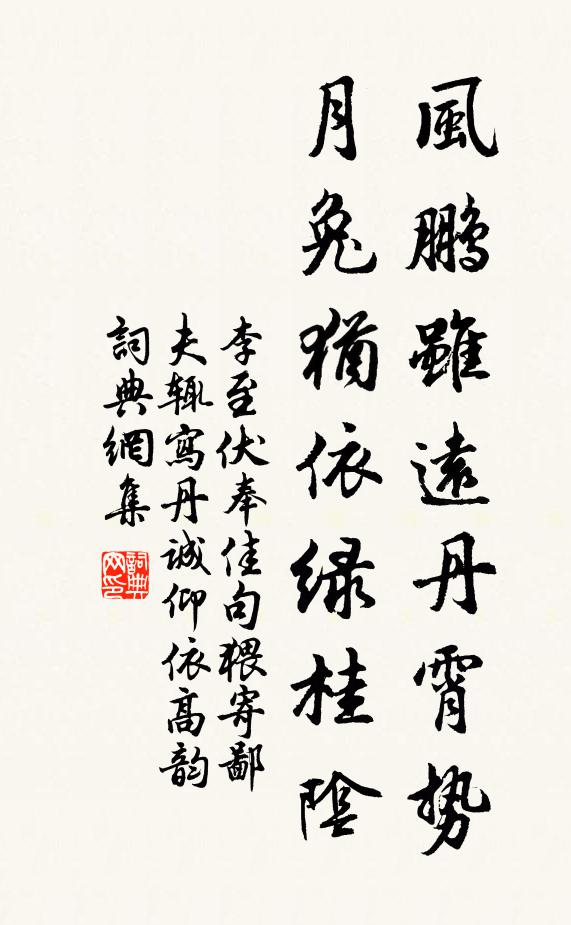 風鵬雖遠丹霄勢
月兔猶依緑桂陰
李至伏奉佳句猥寄鄙
夫辄寫丹誠仰依高韵
詞典網集
詞典
网印